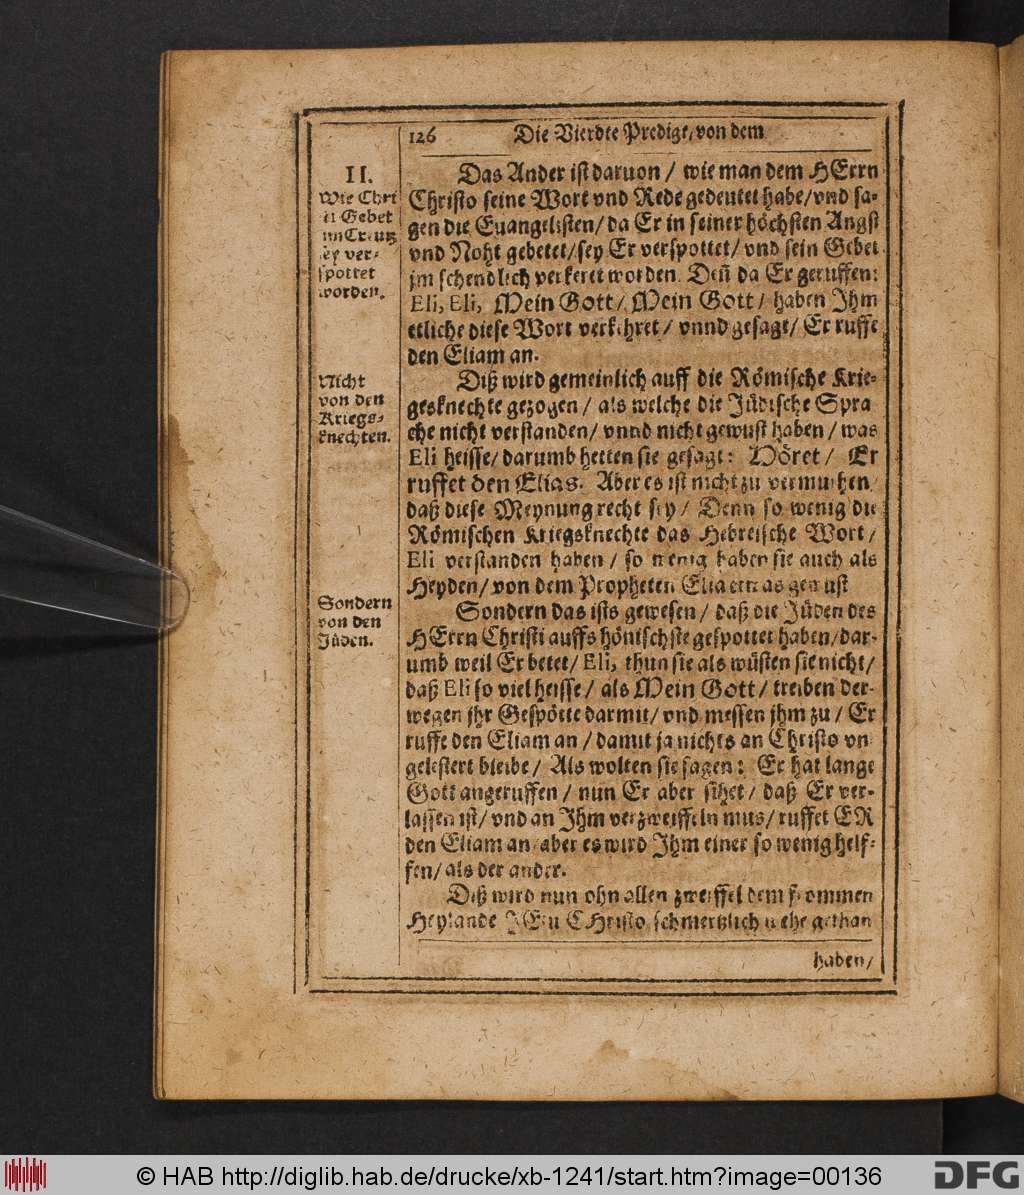 126 Die Vierdte Predigt, von dem
II.
Wie Chri
ti Gebet
im Creutz
sey ver-
spottet
worden.
Das Ander ist daruon / wie man dem HErrn
Christo seine Wort vnd Rede gedeutet habe/vnd sa-
gen die Euangelisten/ da Er in seiner höchsten Angst
vnd Noht gebetet/sey Er verspottet/ vnd sein Gebet
jm schendlich verkeret worden. Deñ da Er geruffen:
Eli, Eli, Mein Gott/ Mein Gott/ haben Ihm
etliche diese Wort verkehret / vnnd gesagt/ Er ruffe
den Eliam an.
Nicht
von den
Kriegs-
knechten.
Diß wird gemeinlich auff die Römische Krie-
gesknechte gezogen / als welche die Jüdische Spra
che nicht verstanden/ vnnd nicht gewust haben / was
Eli heisse/ darumb hetten sie gesagt: Höret / Er
ruffet den Elias. Aber es ist nicht zu vermuthen/
daß diese Meynung recht sey / Denn so wenig die
Römischen Kriegsknechte das Hebreische Wort/
Eli verstanden haben / so wenig haben sie auch als
Heyden/ von dem Propheten Elia etwas gewust
Sondern
von den
Jüden.
Sondern das ists gewesen / daß die Jüden des
HErrn Christi auffs hönischste gespottet haben/dar-
umb weil Er betet/ Eli, thun sie als wüsten sie nicht/
daß Eli so viel heisse/ als Mein Gott/ treiben der-
wegen jhr Gespötte darmit/ vnd messen jhm zu / Er
ruffe den Eliam an / damit ja nichts an Christo vn
gelestert bleibe/ Als wolten sie sagen: Er hat lange
Gott angeruffen / nun Er aber sihet/ daß Er ver-
lassen ist/ vnd an Ihm verzweiffeln mus/ ruffet ER
den Eliam an/ aber es wird Ihm einer so wenig helf-
fen/ als der ander.
Diß wird nun ohn allen zweiffel dem frommen
Heylande JEsu CHristo schmertzlich wehe gethan
haben/
© HAB http://diglib.hab.de/drucke/xb-1241/start.htm?image=00136
DFG